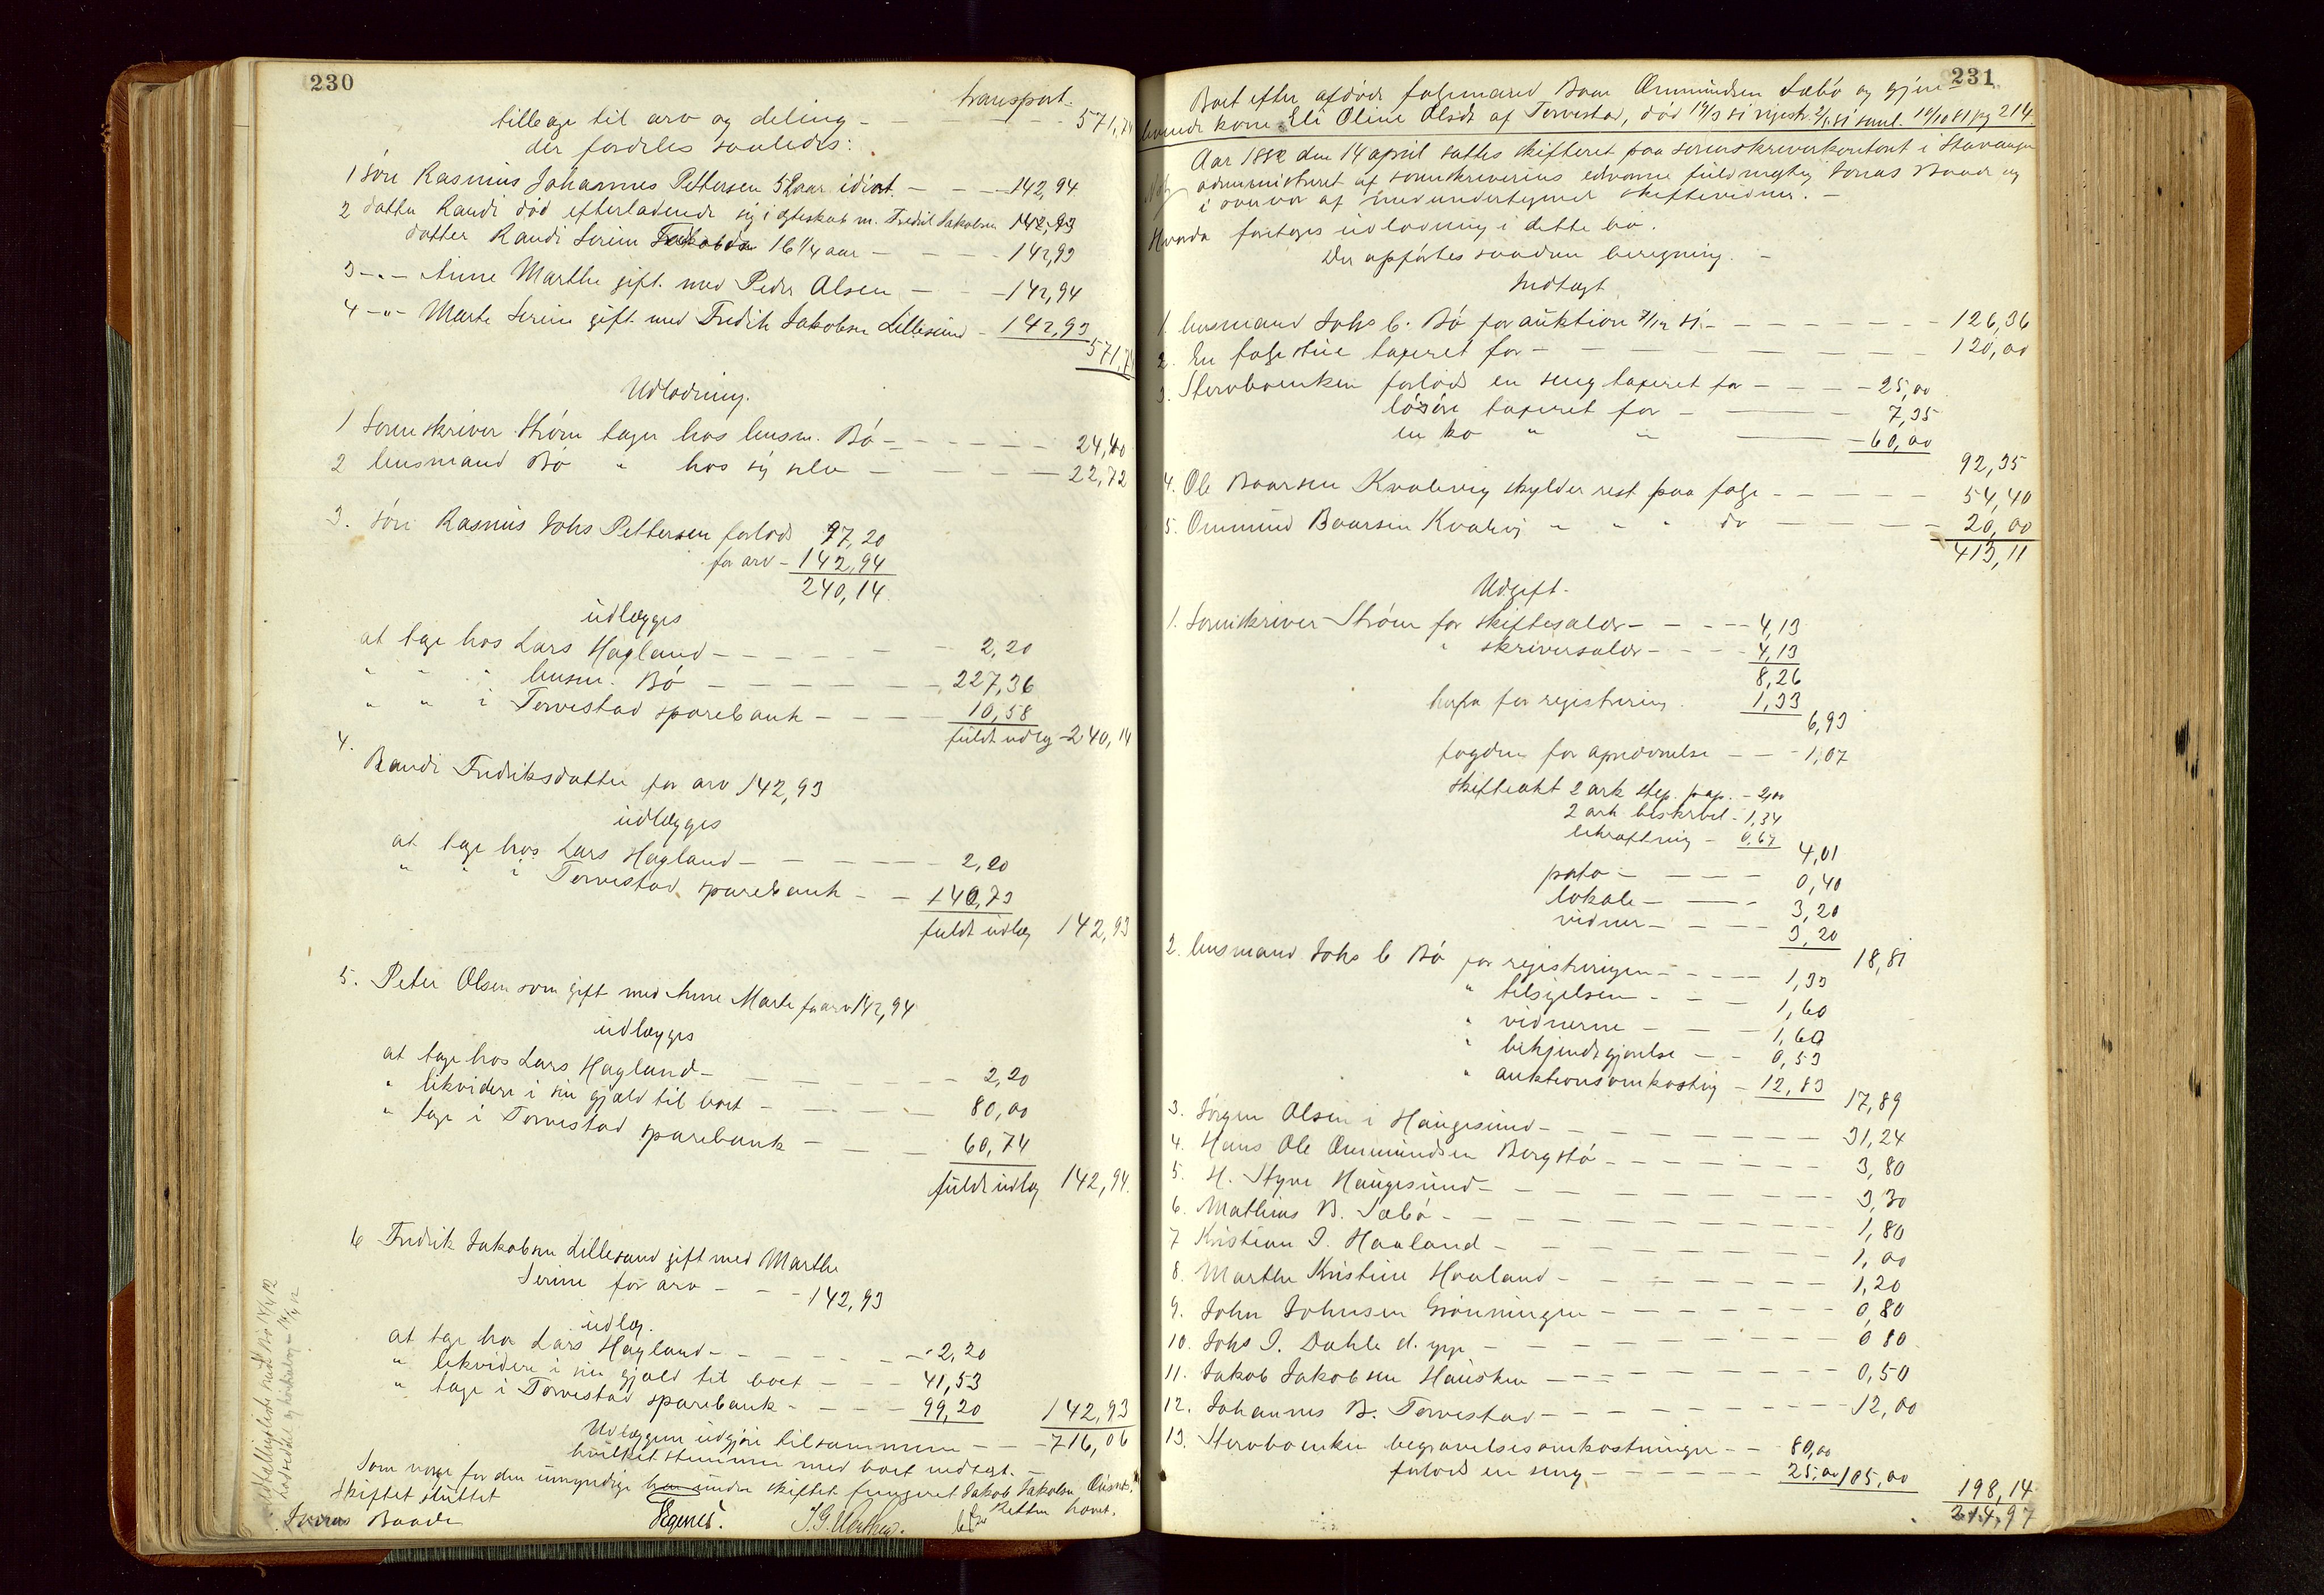 230
transport.
tillage til arv og deling - - - - 571,74
der fordeles saaledes:
1 søn Rasmus Johannes Pettersen 52 aar idiot. - - - 142,94
2 datter Randi død efterladende sig i egteskab m. Fredrik Jakobsen 142,93
datter Randi Serine 16 1/4 aar - - - - 142,93
3 -"- Anne Marthe gift. med Peder Olsen - - - 142,94
4 -"- Marte Serine gift. med Fredrik Jakobsen Lillesund - 142,93
571,74
Udlodning.
1 Sorenskriver Strøm tager hos lensm. Bø - - - - 24,40
2 lensmand Bø " hos sig selv - - - - 22,72
3. søn Rasmus Johs Pettersen forlods 97,20
for arv - 142,94
240,14.
udlægges
at tage hos Lars Hagland - - - - - 2,20
" " " lensm. Bø - - - - - 227,36
" " i Torvestad sparebank - - - - 10,58
fuldt udlæg - 240,14
4.
Randi Fredriksdatter for arv 142,93
udlægges
at tage hos Lars Hagland - - - - - 2,20
" " i Torvestad sparebank - - 140,73
fuldt udlæg 142,93
5. Peter Olsen som gift med Anne Marte for arv 142,94
udlægges
at tage hos Lars Hagland - - - - 2,20
" likvidere i sin gjæld til boet - - - - 80,00
" tage i Torvestad sparebank - - - 60,74
fuldt udlæg 142,94.
6 Fredrik Jakobsen Lillesund gift med Marthe
Serine for arv - - - 142,93
udlæg.
at tage hos Lars Hagland - - - - - 2,20
" likvidere i sin gjæld til boet - - - 41,53
" tage i Torvestad sparebank - - - - 99,20 142,93
Udlæggene udgjør tilsammen - - - 716,06
hvilket stemmer med boets indtægt. -
Som verge for den umyndige har under skiftet fungeret Jakob Jakobsen
Skiftet sluttet Retten hævet.
Jonas Baade
231
Boet efter afdøde folgemand Baar Ommundsen Sæbø og gjen-
levende kone Eli Oline Olsdr af Torvestad, død 17/3 81 registr. 2/5 81 saml. 19/10 81 pg 214.
Aar 1882 den 14 april sattes skifteret paa sorenskriverkontoret i Stavanger
administreret af sorenskriverens edsvorne fuldmægtig Jonas Baade og
i overvær af medundertegnede skiftevidner. -
Hvorda foretoges udlodning i dette bo.
Der opførtes saadan beregning. -
Indtægt
1. lensmand Johs C. Bø for auktion 7/12 81. - - - - - - 126,36
2. En folgestue taxeret for - - - - - - - - 120,00
3. Stervboenken forlods en seng taxeret for - - - - 25,00
løsøre taxeret for - - - 7,35
en ko " " - - 60,00
92,35
4. Ole Baarsen Kvalevig skylder rest paa folge - - - - - 54,40
5. Ommund Baarsen Kvalevig " " " do - - - - 20,00
413,11
Udgift.
1. Sorenskriver Strøm for skiftesalær - - - - 4,13
" skriversalær - - - - 4,13
8,26
herfra for registrering. 1,33
6,93
fogden for aprobation - - - 1,07
skifteakt 2 ark step. pap. - 2,00
2 ark beskrbet - 1,34
bekræftning - 0,67 4,01
porto - - - - - 0,40
lokale - - - - 3,20
vidner - - - - 3,20
18,81
2. lensmand Johs C Bø for registreringen - - - - 1,33
" tilsigelsen - - - 1,60
" vidnerne - - - 1,60
" bekjendtgjørelse - - 0,53
" auktionsomkosting - 12,83 17,89
3. Jørgen Olsen i Haugesund - - - - - - - - 31,24
4. Hans Ole Ommundsen Bergstø - - - - - - 3,80
5. H. Styve Haugesund - - - - - - - - 3,30
6. Mathias B. Sæbø - - - - - - - - - 1,80
7 Kristian I. Haaland - - - - - - - - 1,00
8. Marthe Kristine Haaland - - - - - - - 1,20
9. John Johnsen Grønningen - - - - - - - 0,80
10. Johs I. Dahle d. yngr - - - - - - - 0,80
11. Jakob Jakobsen Hausken - - - - - - - 0,50
12. Johannes B. Torvestad - - - - - - - - 12,00
13. Stervboenken begravelsesomkostninger - - 80,00
forlods en seng - - - - - - 25,00 105,00
198,14
214,97